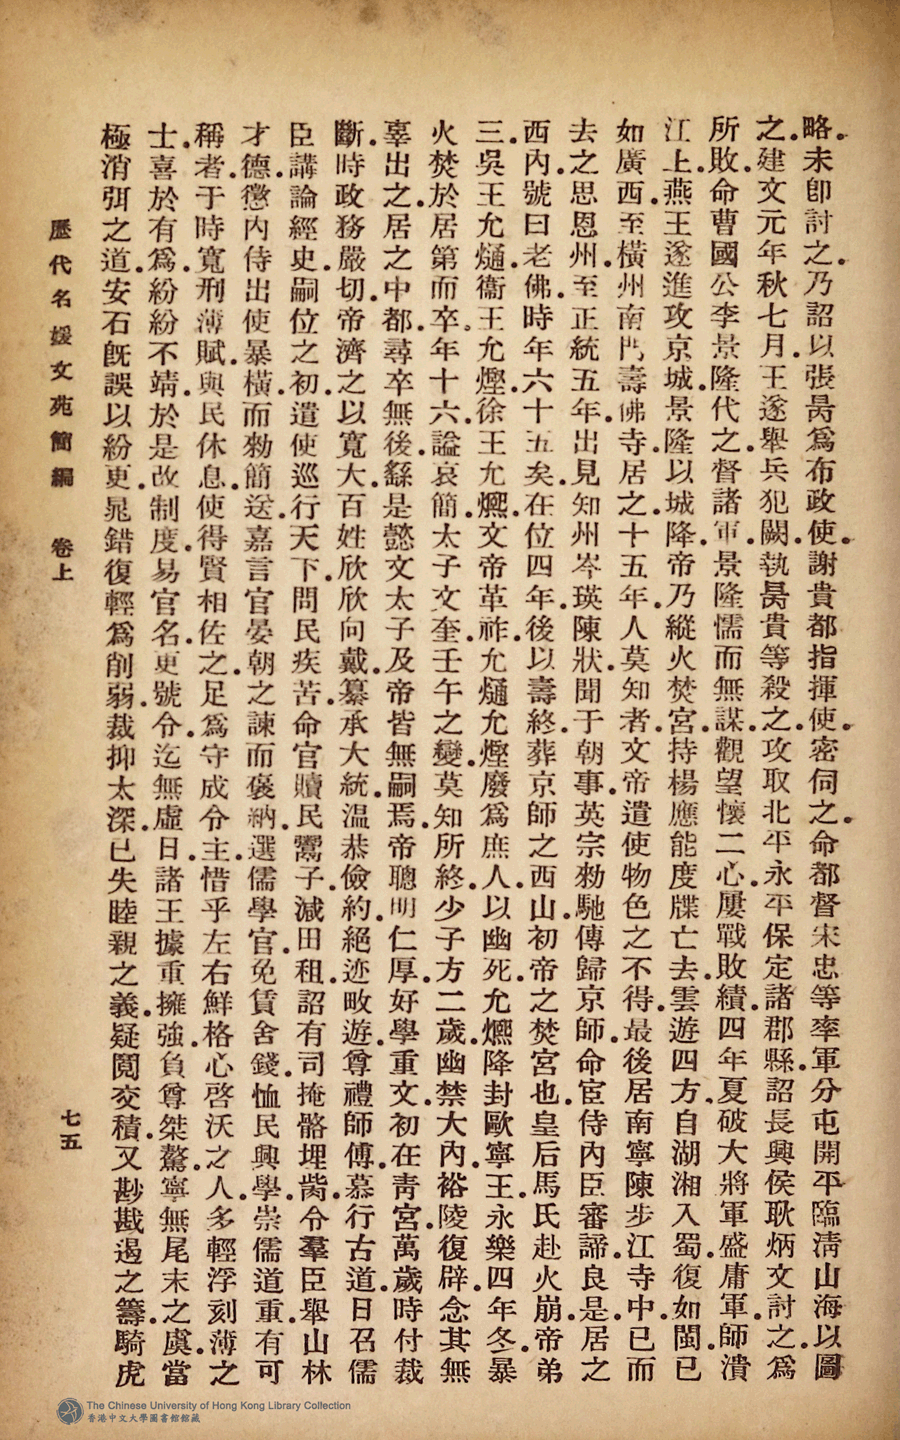 略。未卽討之。乃詔以張昺爲布政使。謝貴都指揮使。密伺之。命都督宋忠等率軍分屯開平臨淸山海以圖
之。建文元年秋七月。王遂舉兵犯闕。執昺貴等殺之。攻取北平永平保定諸郡縣。詔長興侯耿炳文討之。爲
所敗。命曹國公李景隆代之。督諸軍。景隆懦而無謀。觀望懷二心。屢戰敗績。四年夏。破大將軍盛庸軍。師潰
江上。燕王遂進攻京城。景隆以城降。帝乃縱火焚宮。持楊應能度牒亡去。雲遊四方。自湖湘入蜀。復如閩。已
如廣西。至橫州南門壽佛寺。居之十五年。人莫知者。文帝遣使物色之不得。最後居南寧陳步江寺中。已而
去之思恩州。至正統五年。出見知州岑瑛陳狀。聞于朝事。英宗勑馳傳歸京師。命宦侍內臣審諦。良是。居之
西內。號曰老佛。時年六十五矣。在位四年。後以壽終。葬京師之西山。初帝之焚宮也。皇后馬氏赴火崩。帝弟
三。吳王允熥。衞王允熞。徐王允㷩。文帝革祚。允熥允熞廢爲庶人。以幽死。允㷩降封歐寧王。永樂四年冬。暴
火焚於居第而卒。年十六。諡哀簡。太子文奎。壬午之變。莫知所終。少子方二歲。幽禁大內。裕陵復辟。念其無
辜。出之。居之中都。尋卒無後。繇是懿文太子及帝皆無嗣焉。帝聰明仁厚。好學重文。初在靑宮。萬歲時付裁
斷。時政務嚴切。帝濟之以寬大。百姓欣欣向戴。纂承大統。温恭儉約。絕迹畋遊。尊禮師傅。慕行古道。日召儒
臣講論經史。嗣位之初。遣使巡行天下。問民疾苦。命官贖民鬻子。減田租。詔有司掩骼埋胔。令羣臣舉山林
才德。懲內侍出使暴橫而勑簡送。嘉言官晏朝之諫而褒納。選儒學官。免賃舍錢。恤民興學。崇儒道重。有可
稱者。于時寬刑薄賦。與民休息。使得賢相佐之。足爲守成令主。惜乎左右鮮格心啓沃之人。多輕浮刻薄之
士。喜於有爲。紛紛不靖。於是改制度。易官名。更號令。迄無虛日。諸王據重擁強。負尊桀驁。寧無尾末之虞。當
極消弭之道。安石旣誤以紛更。晁錯復輕爲削弱。裁抑太深。已失睦親之義。疑䦧交積。又尠戡遏之籌。騎虎
歷代名媛文苑簡編 卷上
七五
The Chinese University of Hong Kong Library Collection
香港中文大學圖書館館藏